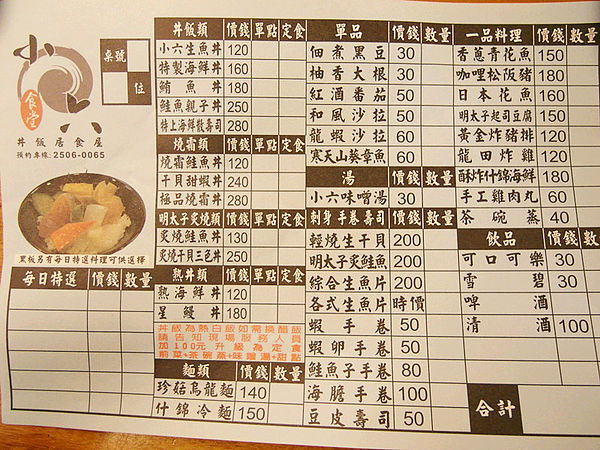 小六食堂
丼飯居食屋
預約專線:2506-0065
桌號
位
黑板另有每日特選料理可供選擇
每日特選 價錢 數量
丼飯類 價錢 單點 定食
小六生魚丼 120
特製海鮮丼 160
鮪魚丼 180
鮭魚親子丼 250
特上海鮮散壽司 280
燒霜類 價錢 單點 定食
燒霜鮭魚丼 120
干貝甜蝦丼 240
極品燒霜丼 280
明太子炙燒類 價錢 單點 定食
炙燒鮭魚丼 130
炙燒干貝三色丼 250
熟丼類 價錢 單點 定食
熟海鮮丼 120
星鰻丼 180
丼飯為熱白飯如需換醋飯
請告知現場服務人員
加100元升級為定食
前菜+茶碗蒸+味噌湯+甜點
麵類 價錢 數量
珍菇烏龍麵 140
什錦冷麵 150
單品 價錢 數量
佃煮黑豆 30
柚香大根 30
紅酒番茄 50
和風沙拉 50
龍蝦沙拉 60
寒天山葵章魚 60
湯 價錢 數量
小六味噌湯 30
刺身手卷壽司 價錢 數量
輕燒生干貝 200
明太子炙鮭魚 200
綜合生魚片 200
各式生魚片 時價
蝦手卷 50
蝦卵手卷 50
鮭魚子手卷 80
海膽手卷 100
豆皮壽司 50
一品料理 價錢 數量
香蔥青花魚 150
咖哩松阪豬 180
日本花魚 160
明太子起司豆腐 150
黃金炸豬排 120
龍田炸雞 120
酥炸什錦海鮮 180
手工雞肉丸 60
茶碗蒸 40
飲品 價錢 數量
可口可樂 30
雪碧 30
啤酒
清酒 100
合計